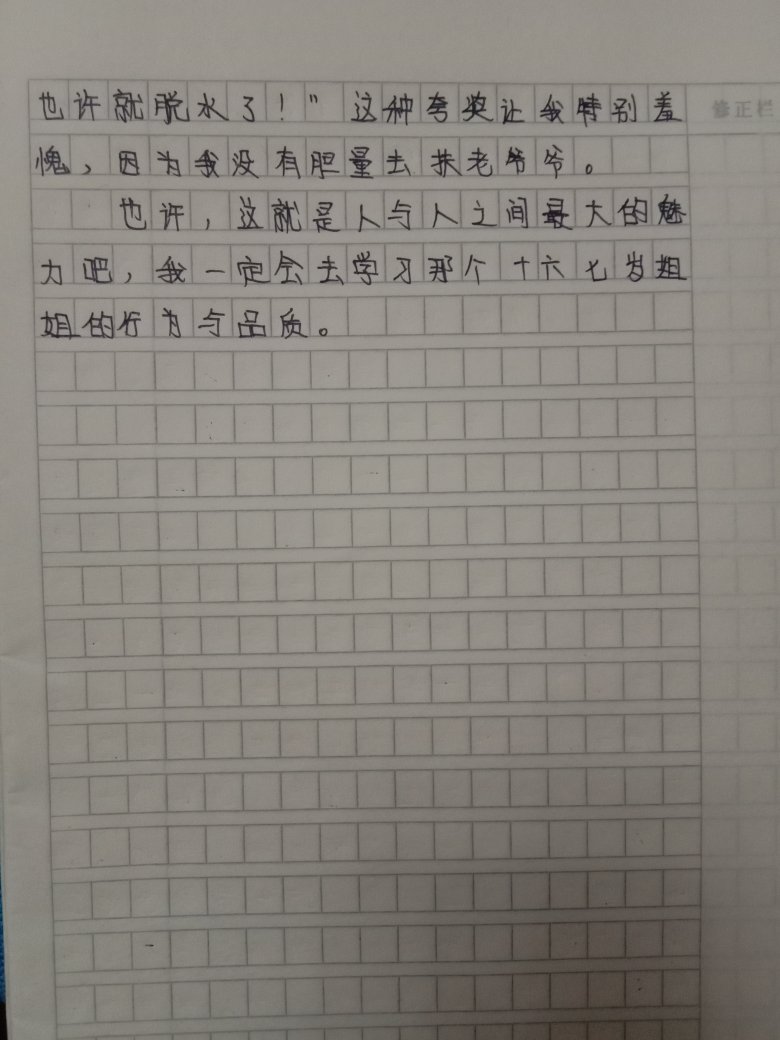 也许就脱水了！”这种夸奖让我特别羞
愧，因为我没有胆量去扶老爷爷。
也许，这就是人与人之间最大的魅
力吧，我一定会去学习那个十六七岁姐
姐的行为与品质。
修正栏